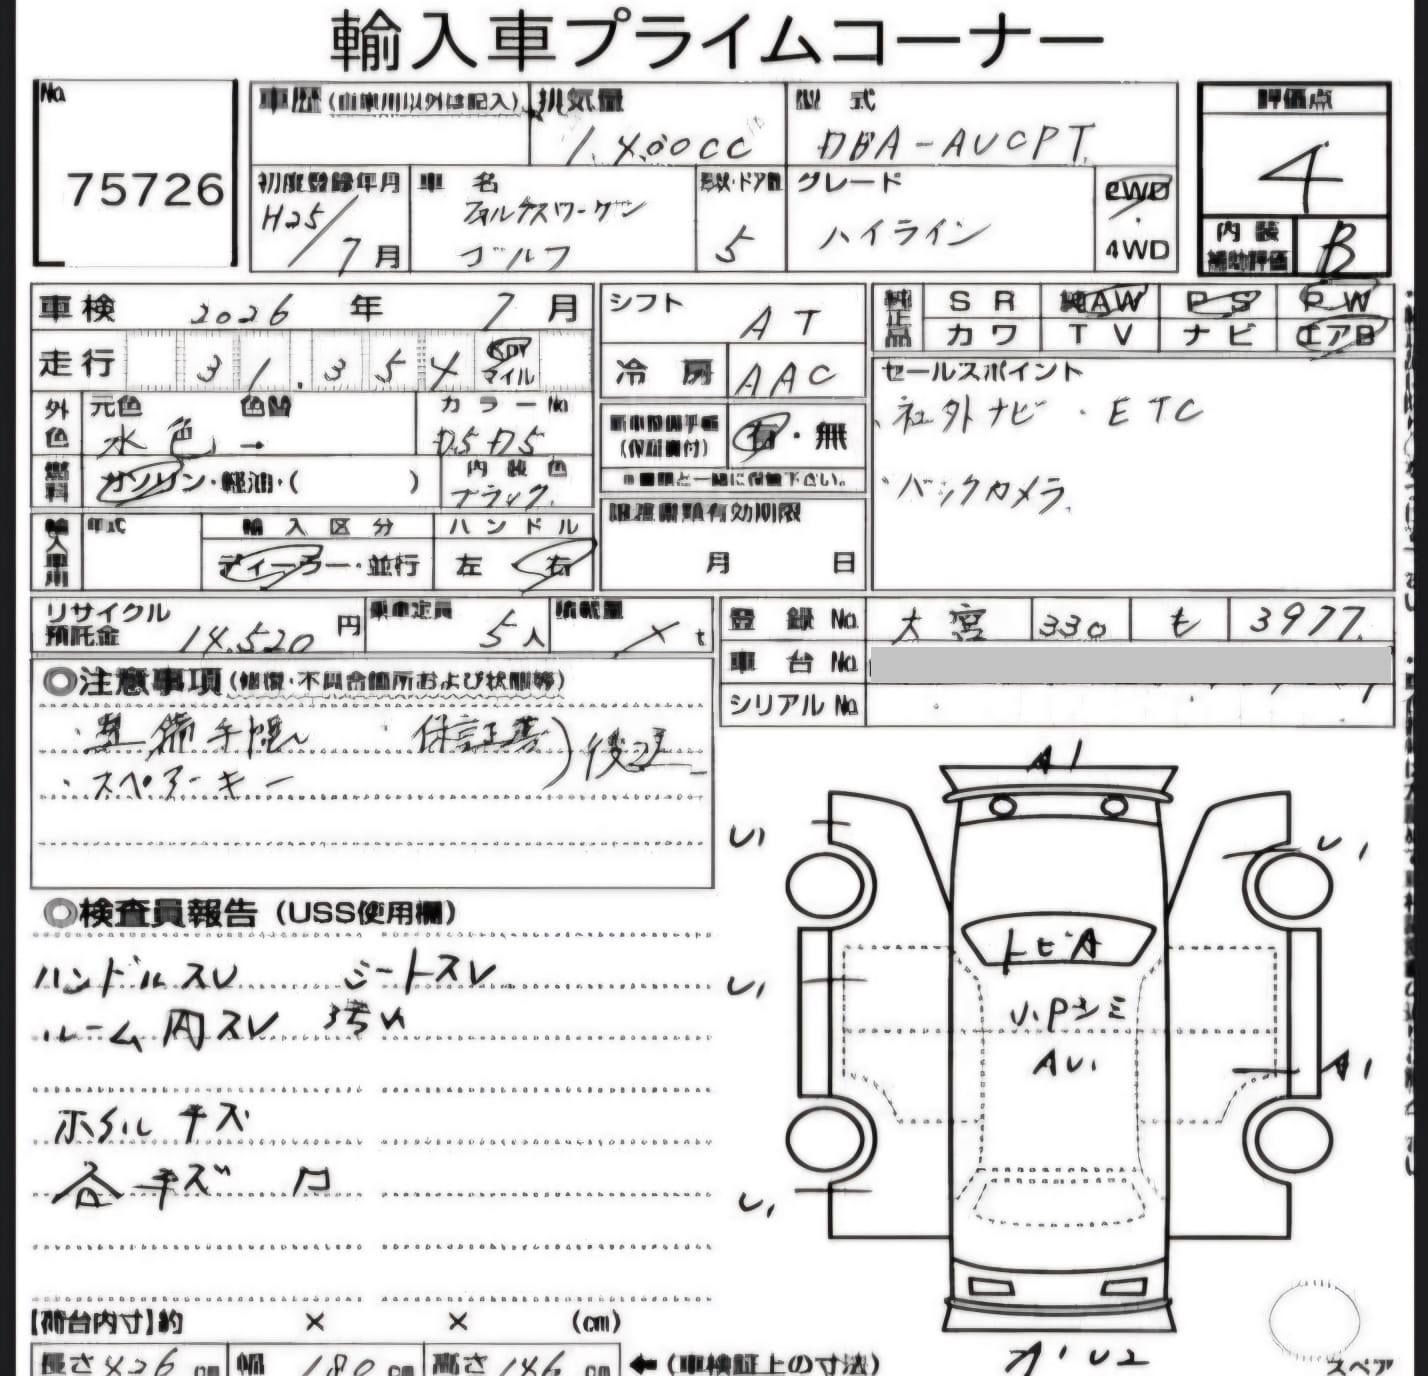 輸入車プライムコーナー
No.
75726
車歴 (自家用以外は記入) 排気量 型 式 評価点
1,400CC DBA-AUCPT 4
初度登録年月 車 名 形状・ドア数 グレード 2WD・4WD
H25/7月 フォルクスワーゲン ゴルフ 5 ハイライン
内装補助評価 B
車検 2026年 7月 シフト AT
純正品 SR 純AW PS PW
カワ TV ナビ エアB
走行 31,354 Km マイル 冷房 AAC
セールスポイント
・社外ナビ・ETC
・バックカメラ
外色 元色 水色 → 色替 カラーNo. D5D5
新車時保証手帳 (保証書付) 有・無
※書類と一緒に保管下さい。
燃料 ガソリン・軽油・( ) 内装色 ブラック
譲渡書類有効期限
月 日
輸入車用 年式 輸入区分 ハンドル
ディーラー・並行 左 右
リサイクル預託金 14,520円 乗車定員 5人 積載量 t
登録No. 大宮 330 も 3977
車台No.
シリアルNo.
◎注意事項 (修復・不具合箇所および状態等)
・整備手帳 保証書)後送
・スペアーキー
◎検査員報告 (USS使用欄)
ハンドルスレ シートスレ
ルーム内スレ 汚れ
ホイルキズ
キズ
A1
U1 U1
トビA
U1 U.Pシミ
AU1 A1
U1
【荷台内寸】約 × × (cm)
長さ426cm 幅180cm 高さ146cm ←(車検証上の寸法)
U2
スペア